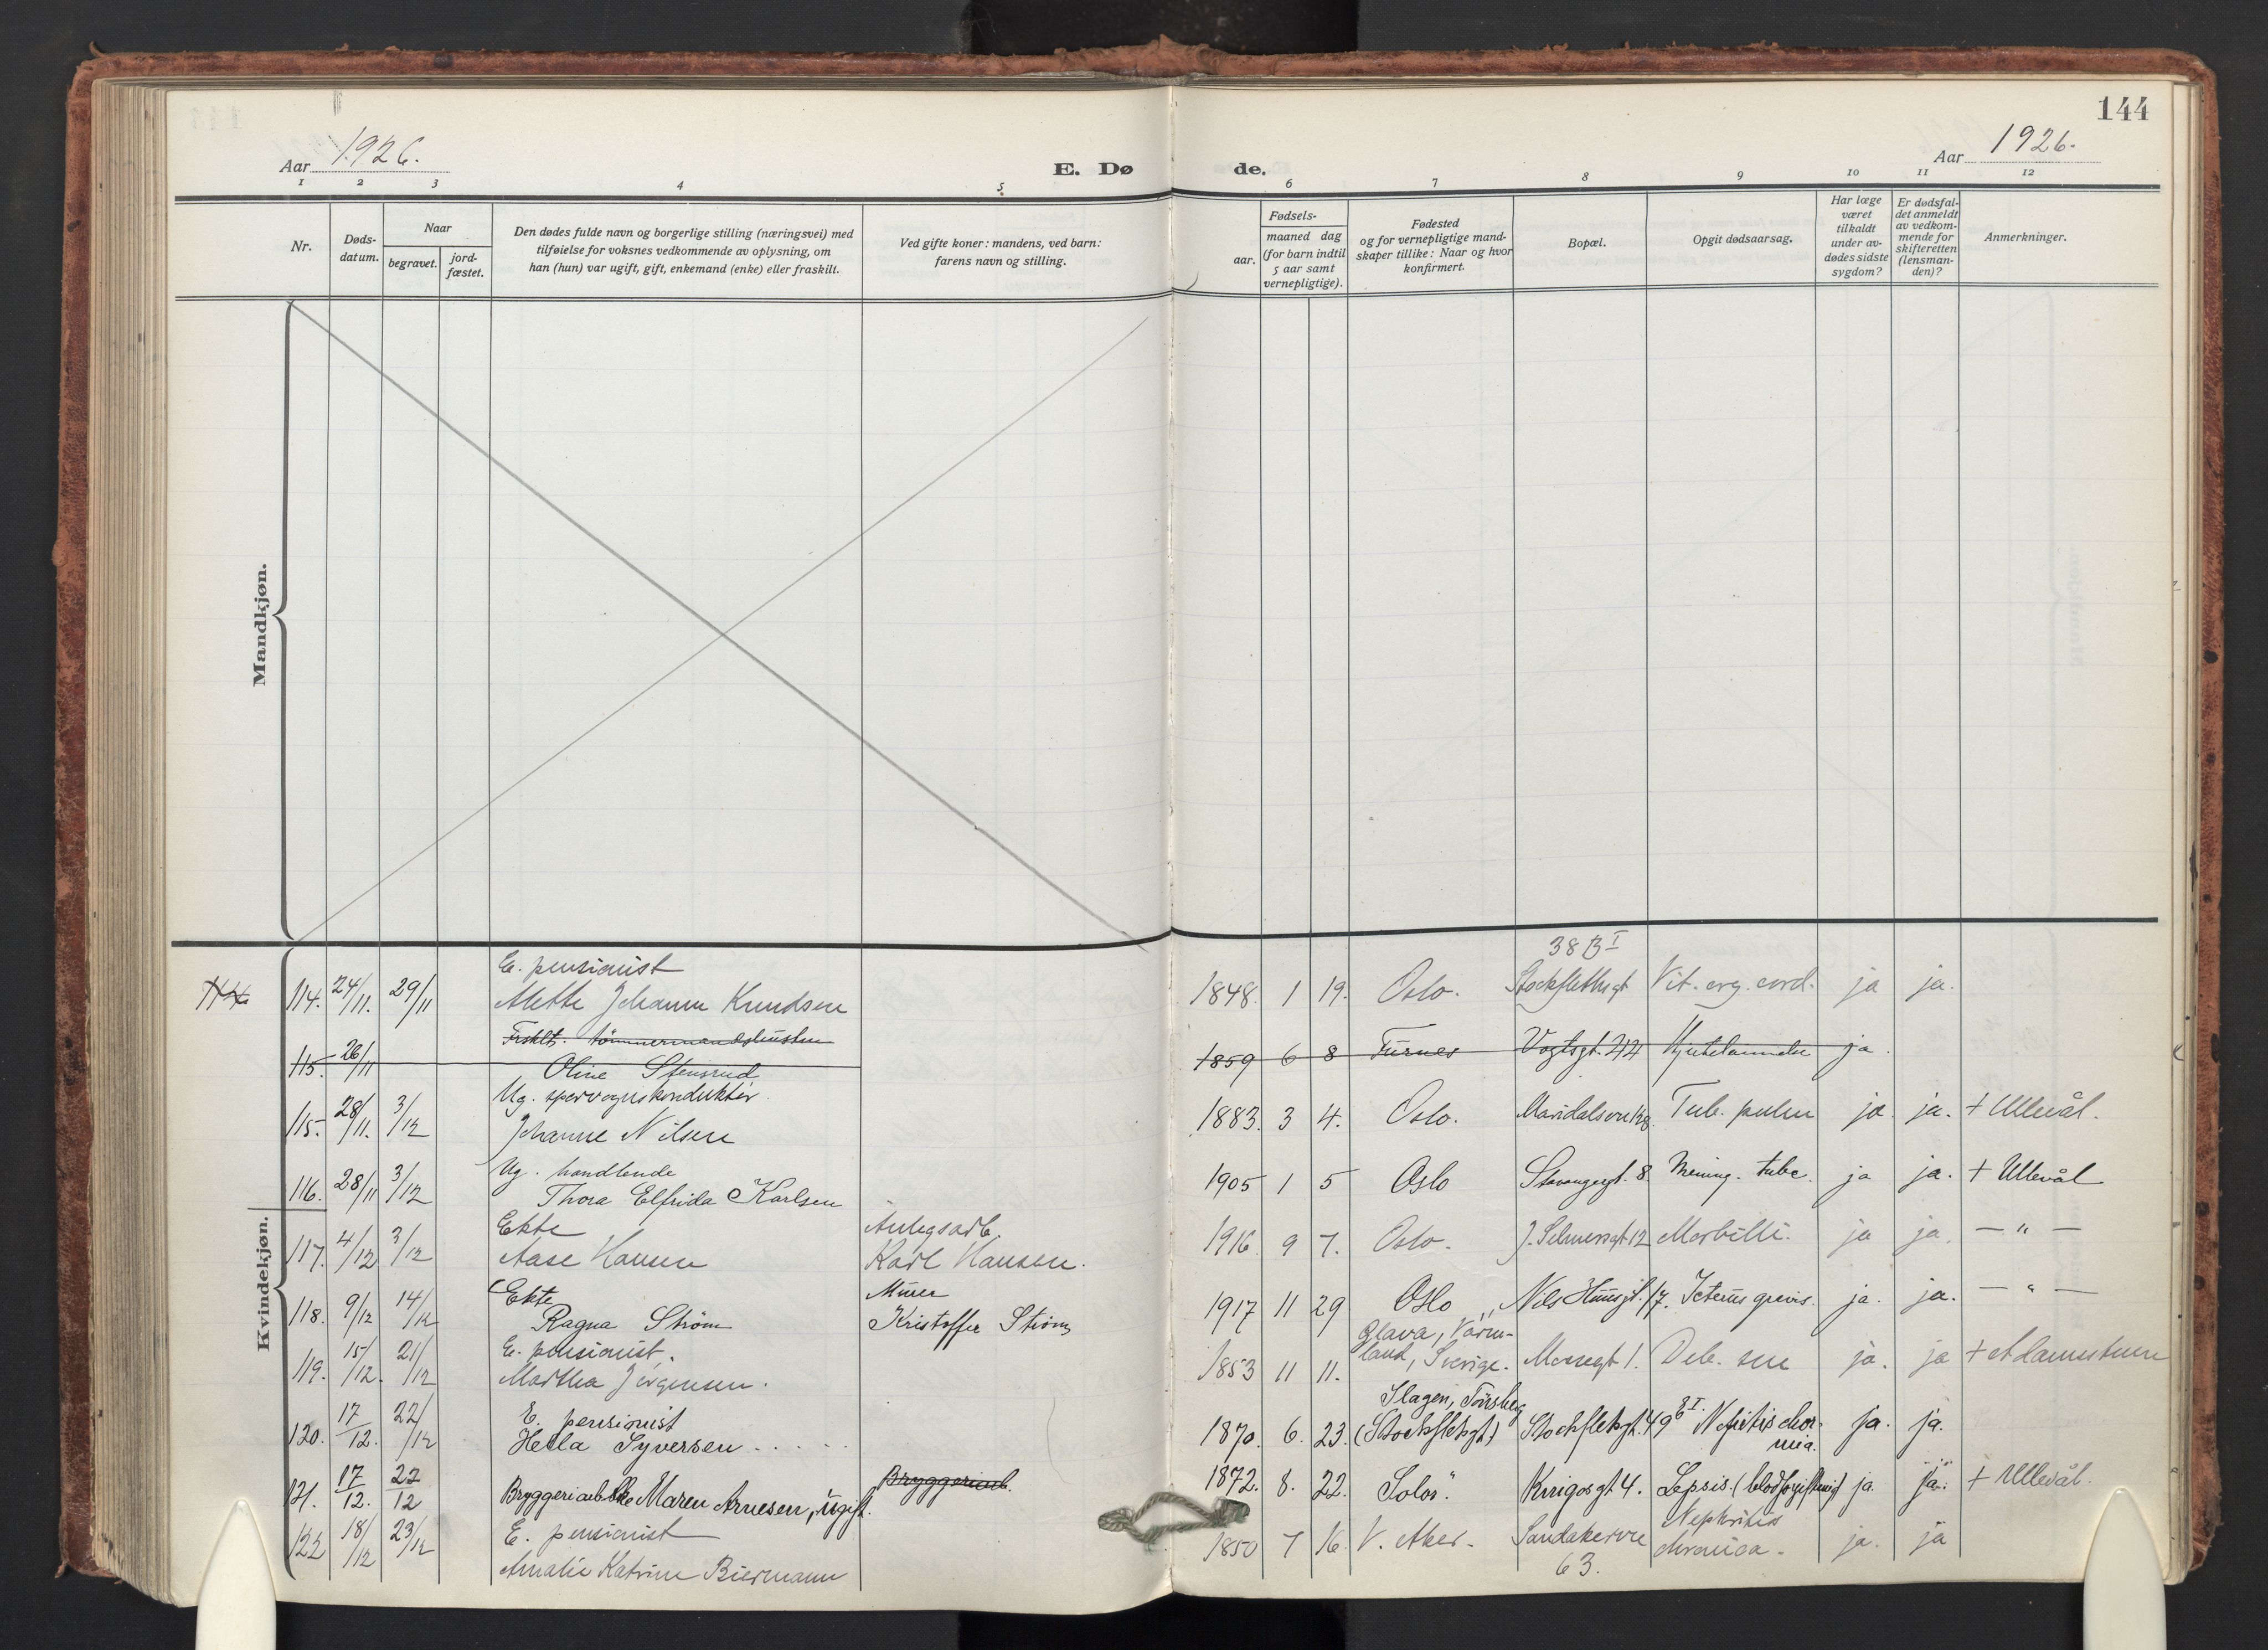 144
Aar 1926.
E. Dø de.
Aar 1926.
1 2 3 4 5 6 7 8 9 10 11 12
Nr.
Døds-
datum.
Naar
begravet.
jord-
fæstet.
Den dødes fulde navn og borgerlige stilling (næringsvei) med
tilføielse for voksnes vedkommende av oplysning, om
han (hun) var ugift, gift, enkemand (enke) eller fraskilt.
Ved gifte koner: mandens, ved barn:
farens navn og stilling.
Fødsels-
aar.
maaned dag
(for barn indtil
5 aar samt
vernepligtige).
Fødested
og for vernepligtige mand-
skaper tillike: Naar og hvor
konfirmert.
Bopæl.
Opgit dødsaarsag.
Har læge
været
tilkaldt
under av-
dødes sidste
sygdom?
Er dødsfal-
det anmeldt
av vedkom-
mende for
skifteretten
(lensman-
den)?
Anmerkninger.
Mandkjøn.
Kvindekjøn.
E. pensionist 38 B I
114. 24/11. 29/11 Alette Johanne Knudsen 1848. 1 19. Oslo. Stockflethsgt Vit. org. cord. ja ja.
Frskilt. tømmermandshustru
115. 26/11 Oline Stensrud 1859 6 8 Furnes Vogtsgt. 44 ja.
Ug. sporvognskonduktør
115. 28/11. 3/12 Johanne Nilsen 1883. 3 4. Oslo. Maridalsvn 128 Tub. pulm ja ja. + Ullevål.
Ug. handlende
116. 28/11 3/12 Thora Elfrida Karlsen 1905 1 5 Oslo Stavangergt. 8. Mening. tube. ja ja. + Ullevål
Ekte Anlegsarb.
117. 4/12 3/12 Aase Hansen Karl Hansen. 1916. 9 7. Oslo. J. Selmersgt 12 Morbilli. ja ja. — " —
Ekte Murer
118. 9/12 14/12 Ragna Strøm Kristoffer Strøm 1917 11 29 Oslo Nils Huusgt. 17. Icterus gravis. ja. ja. — " —
E. pensionist. Glava, Värm-
119. 15/12. 21/12 Martha Jørgensen. 1853 11 11. land, Sverige. Mossegt 1. Deb. sen ja. ja + Adamstuen
E. pensionist Slagen, Tønsberg
120. 17/12. 22/12 Hella Syversen 1870. 6. 23. (Stockflehgt) Stockflehgt. 49 b I. Nefritis chor-
nia. ja. ja.
121. 17/12. 22/12 Bryggeriarbske Maren Arnesen, ugift. Bryggeriarb. 1872. 8. 22. Solør. Kingosgt 4. Sepsis. (blodforgiftning) ja. ja. + Ullevål.
E. pensionist Nephritis
122 18/12 23/12 Amalie Katrine Biermann 1850 7 16 V. Aker. Sandakervn
63. chronica. ja. ja